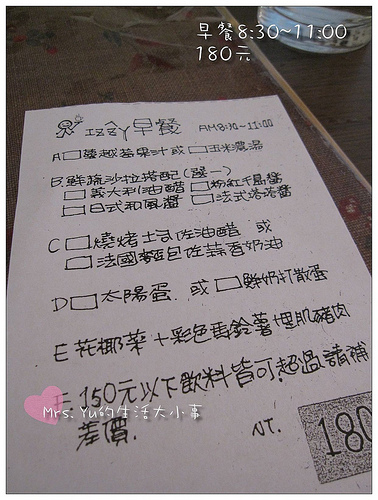 早餐8:30~11:00
180元
IZZY早餐 AM8:30~11:00
A□蔓越莓果汁或□玉米濃湯
B鮮蔬沙拉搭配(選一)
□義大利油醋□粉紅千島醬
□日式和風醬□法式塔塔醬
C□燒烤土司佐油醋 或
□法國麵包佐蒜香奶油
D□太陽蛋 或□鮮奶打散蛋
E花椰菜+彩色馬鈴薯埋肌豬肉
F 150元以下飲料皆可.超過請補
差價.
NT. 180
Mrs. Yu的生活大小事